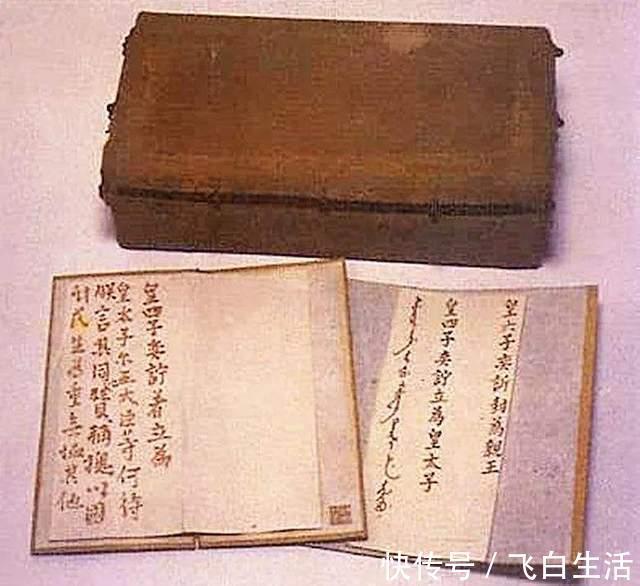 皇四子奕詝著立為
皇太子尔王大臣等何待
朕言其同心贊輔總以國
計民生為重無恤其他
皇六子奕訢封為親王
皇四子奕詝立為皇太子
快传号 / 飞白生活